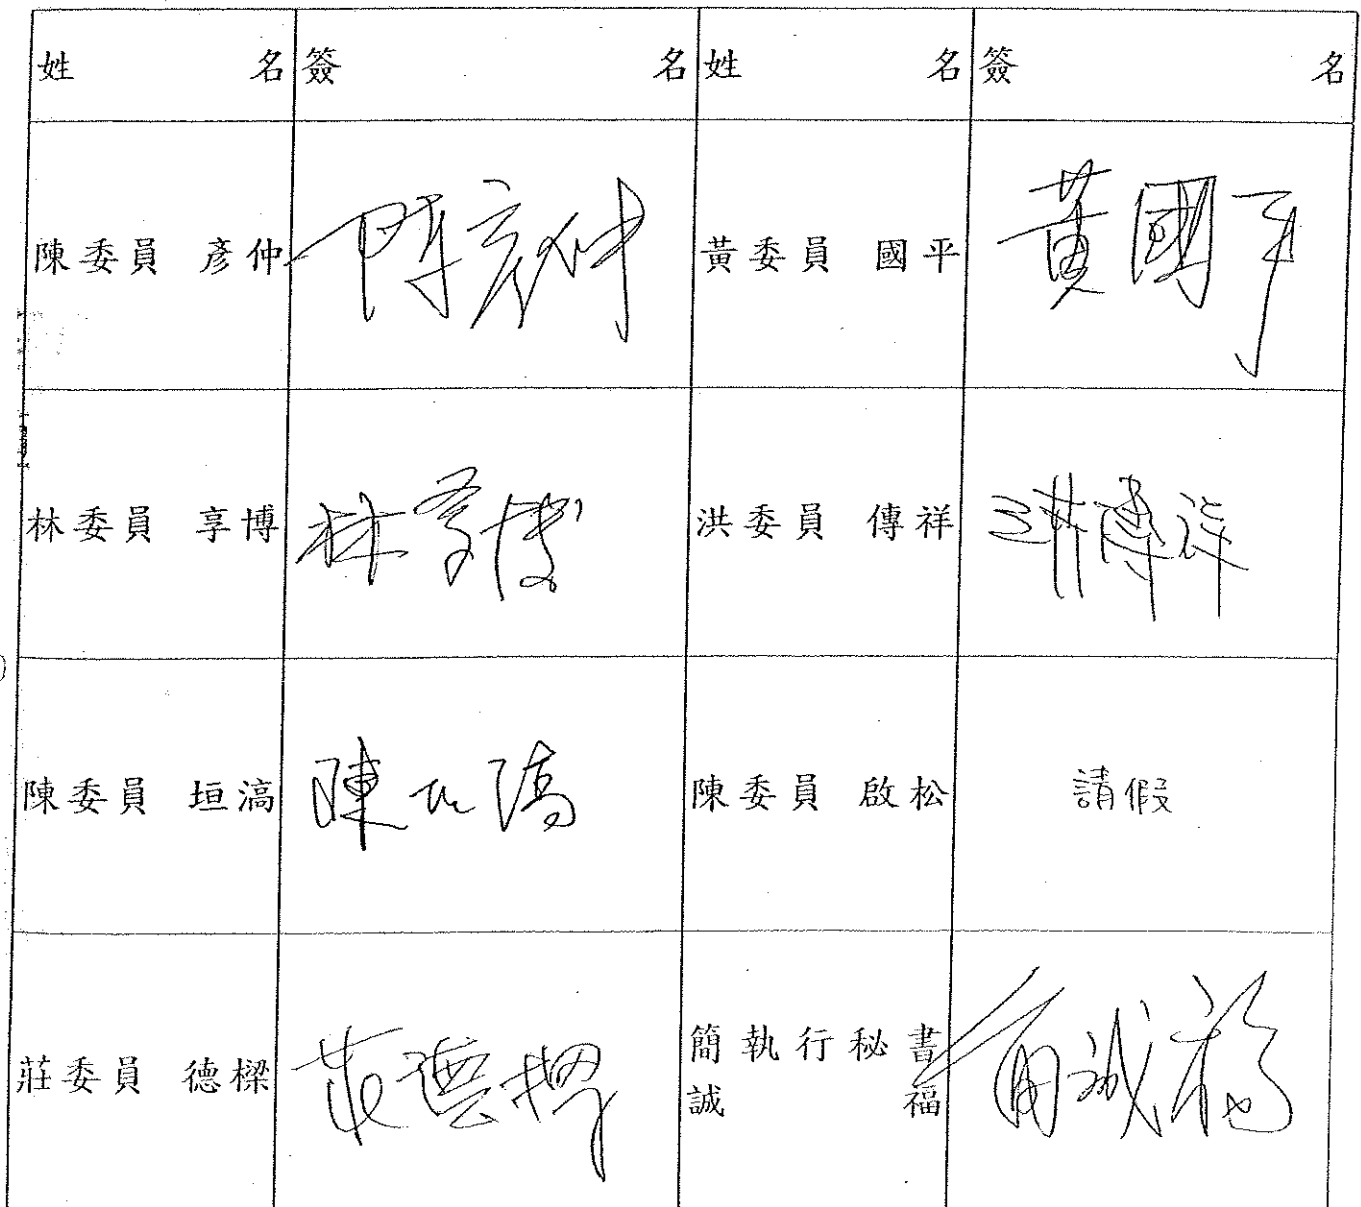 姓名 簽名 姓名 簽名
陳委員 彥仲 陳彥仲 黃委員 國平 黃國平
林委員 享博 林享博 洪委員 傳祥 洪傳祥
陳委員 垣滈 陳垣滈 陳委員 啟松 請假
莊委員 德樑 莊德樑 簡執行秘書 簡誠福
誠福